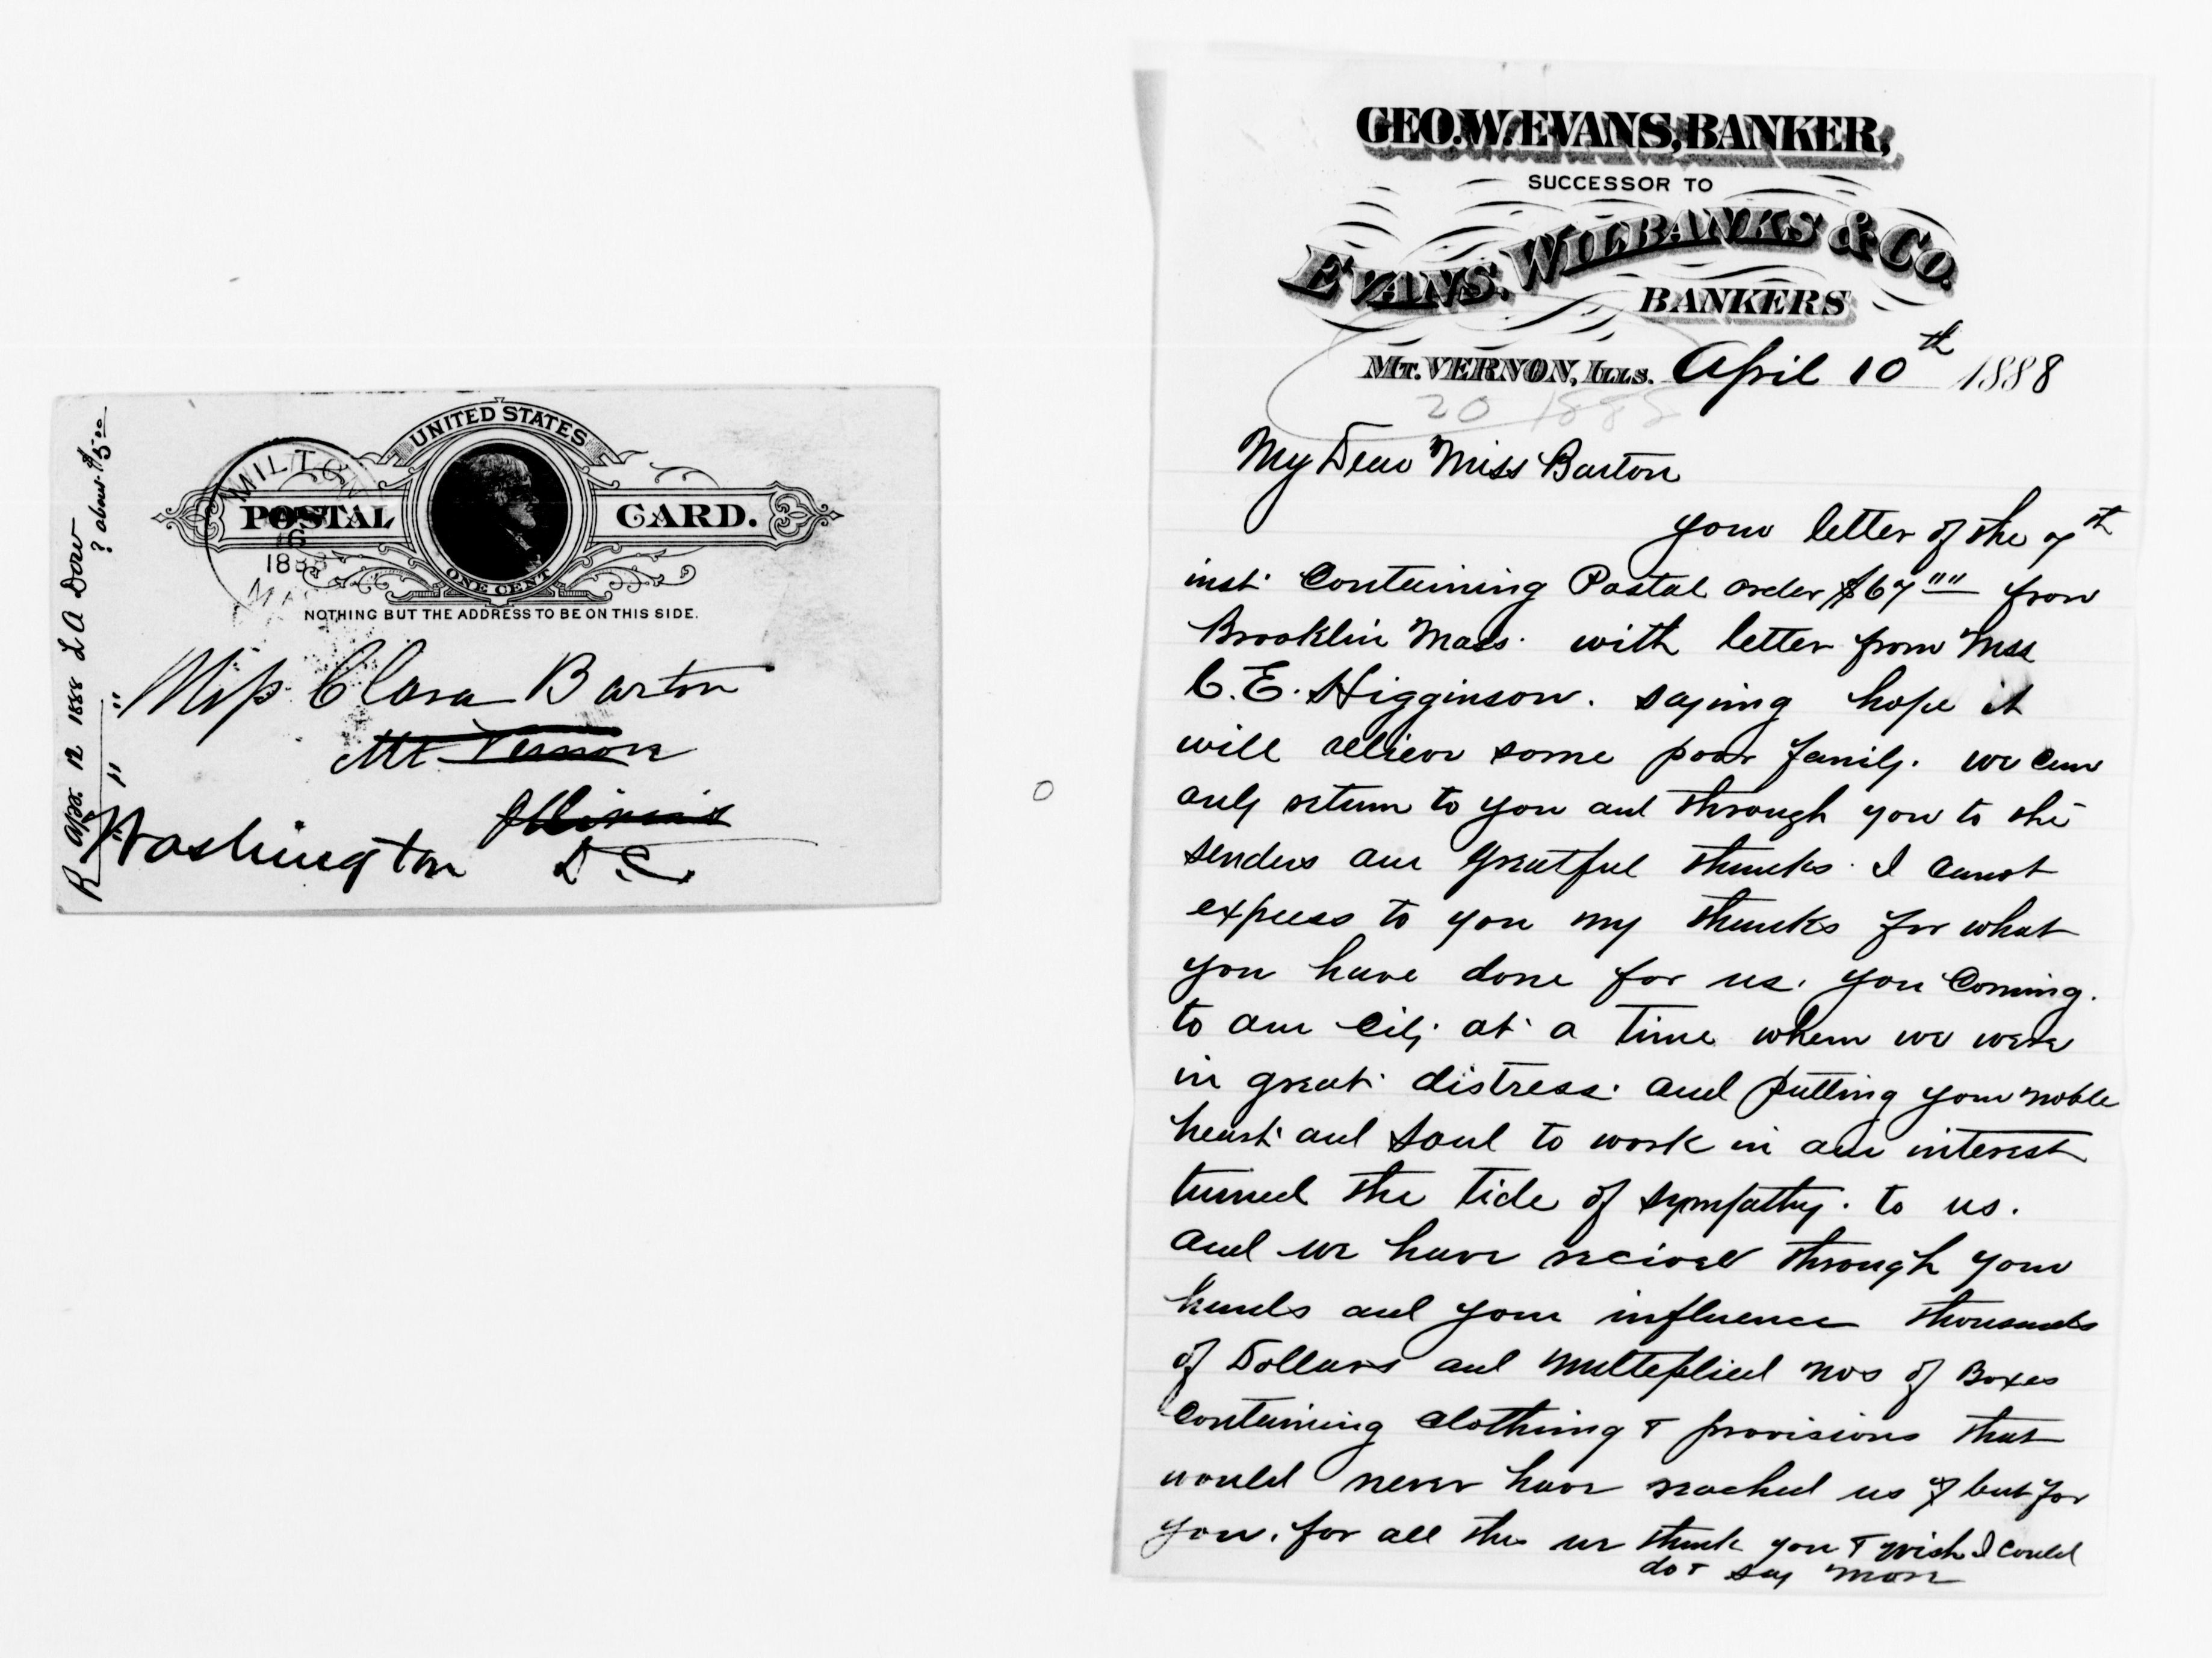 R Apr. 12 1888 L A Dow
" " " ? about $5.00
UNITED STATES
POSTAL CARD.
ONE CENT
MILTON
6
188
MA
NOTHING BUT THE ADDRESS TO BE ON THIS SIDE.
Miss Clara Barton
Mt. Vernon
Illinois
Washington D.C.
GEO. W. EVANS, BANKER,
SUCCESSOR TO
EVANS, WILBANKS & CO.
BANKERS
MT. VERNON, ILLS. April 10th 1888
20 1888
My Dear Miss Barton
your letter of the 7th
inst. Containing Postal order $67"" from
Brooklin Mass. with letter from Mss
C. E. Higginson. saying hope it
will releave some poor family. we can
only return to you and through you to the
senders our greatful thanks. I canot
express to you my thanks for what
you have done for us. you Coming.
to our City at a time when we were
in great distress. and putting your noble
heart and soul to work in our interest
turned the tide of sympathy. to us.
and we have recived through your
hands and your influence thousands
of Dollars and multeplied nos of Boxes
Containing Clothing & provisions that
would never have reached us if but for
you. for all this we thank you & wish I could
do & say more